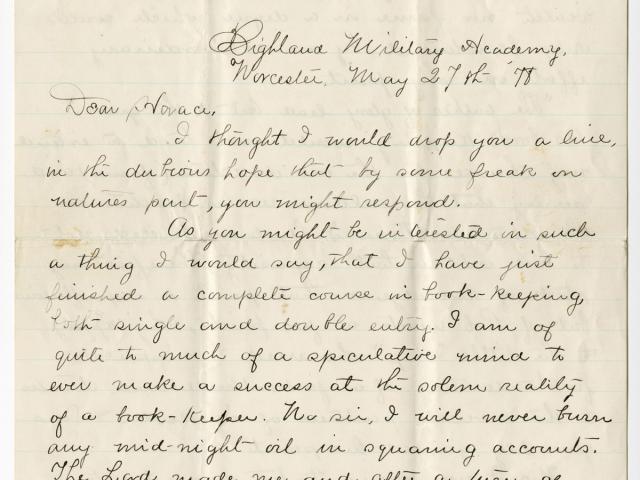 Highland Military Academy,
Worcester, May 27th '78
Dear Horace,
I thought I would drop you a line,
in the dubious hope that by some freak on
natures part, you might respond.
As you might be interested in such
a thing I would say, that I have just
finished a complete course in book-keeping,
both single and double entry. I am of
quite to much of a speculative mind to
ever make a success at the solem reality
of a book-keeper. No sir, I will never burn
any mid-night oil in squaring accounts.
The Lord made me and after a